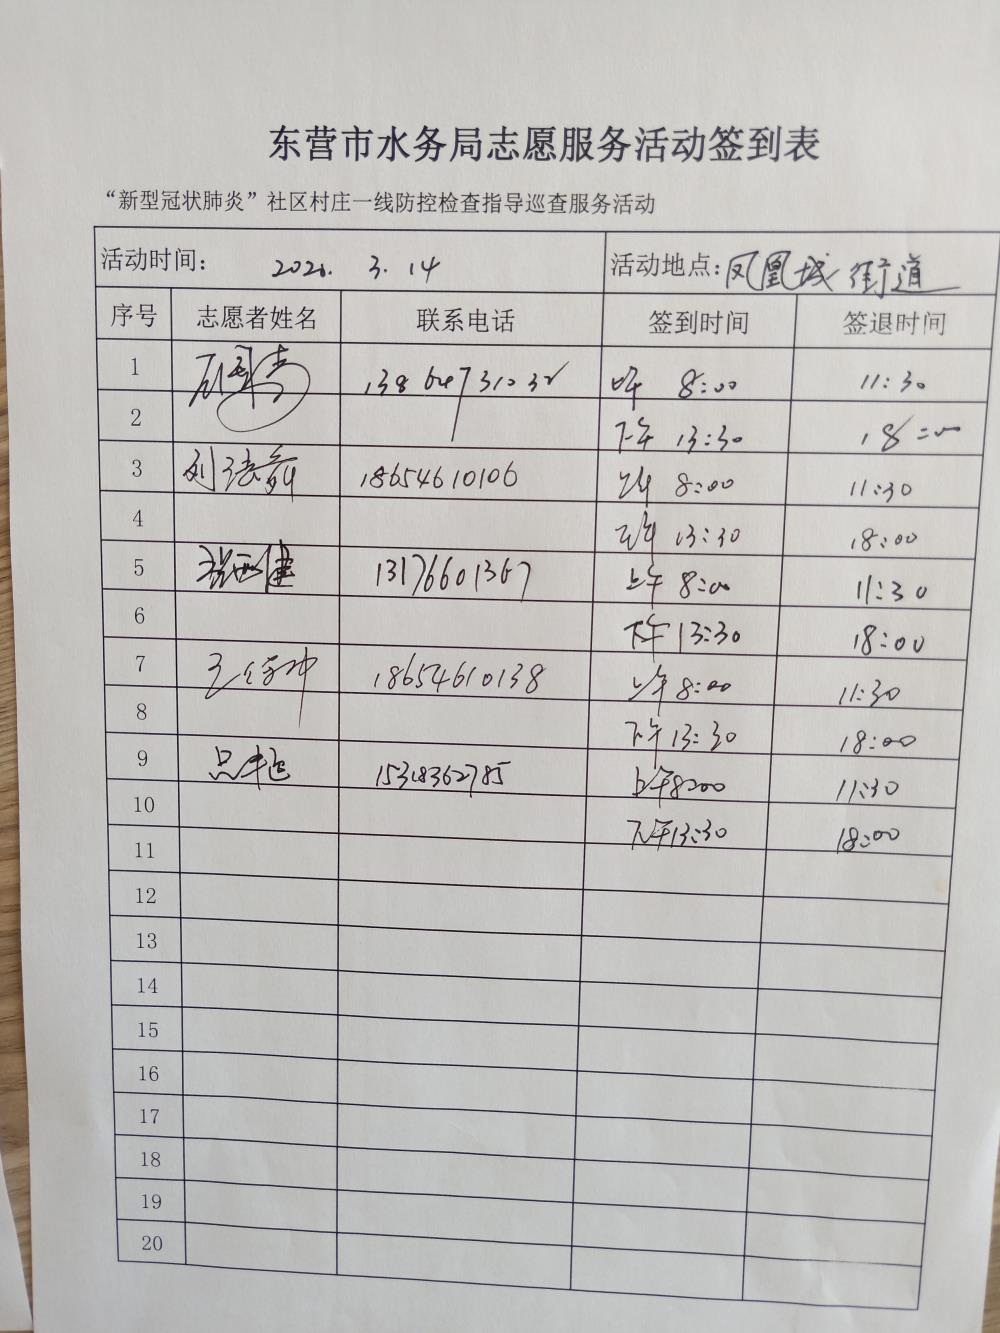 东营市水务局志愿服务活动签到表
“新型冠状肺炎”社区村庄一线防控检查指导巡查服务活动
活动时间： 2020. 3. 14 活动地点：凤凰城街道
序号 志愿者姓名 联系电话 签到时间 签退时间
1 8:00 11:30
2 下午 13:30 18:00
3 18654610106 上午 8:00 11:30
4 下午 13:30 18:00
5 张西健 13176601367 上午 8:00 11:30
6 下午 13:30 18:00
7 18654610138 上午 8:00 11:30
8 下午 13:30 18:00
9 15318362785 上午 8:00 11:30
10 下午 13:30 18:00
11
12
13
14
15
16
17
18
19
20